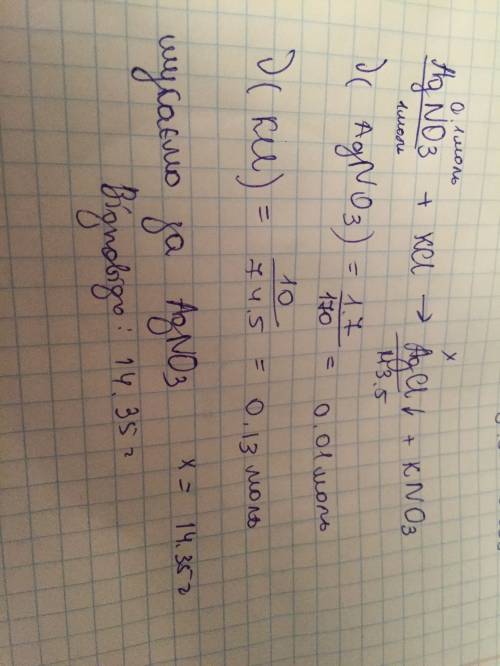 0.1моль x
AgNO3 + KCl → AgCl↓ + KNO3
1моль 143.5
ν(AgNO3) = 1.7/170 = 0.01моль
ν(KCl) = 10/74.5 = 0.13моль
шукаємо за AgNO3 x = 14.35г
Відповідь: 14.35г